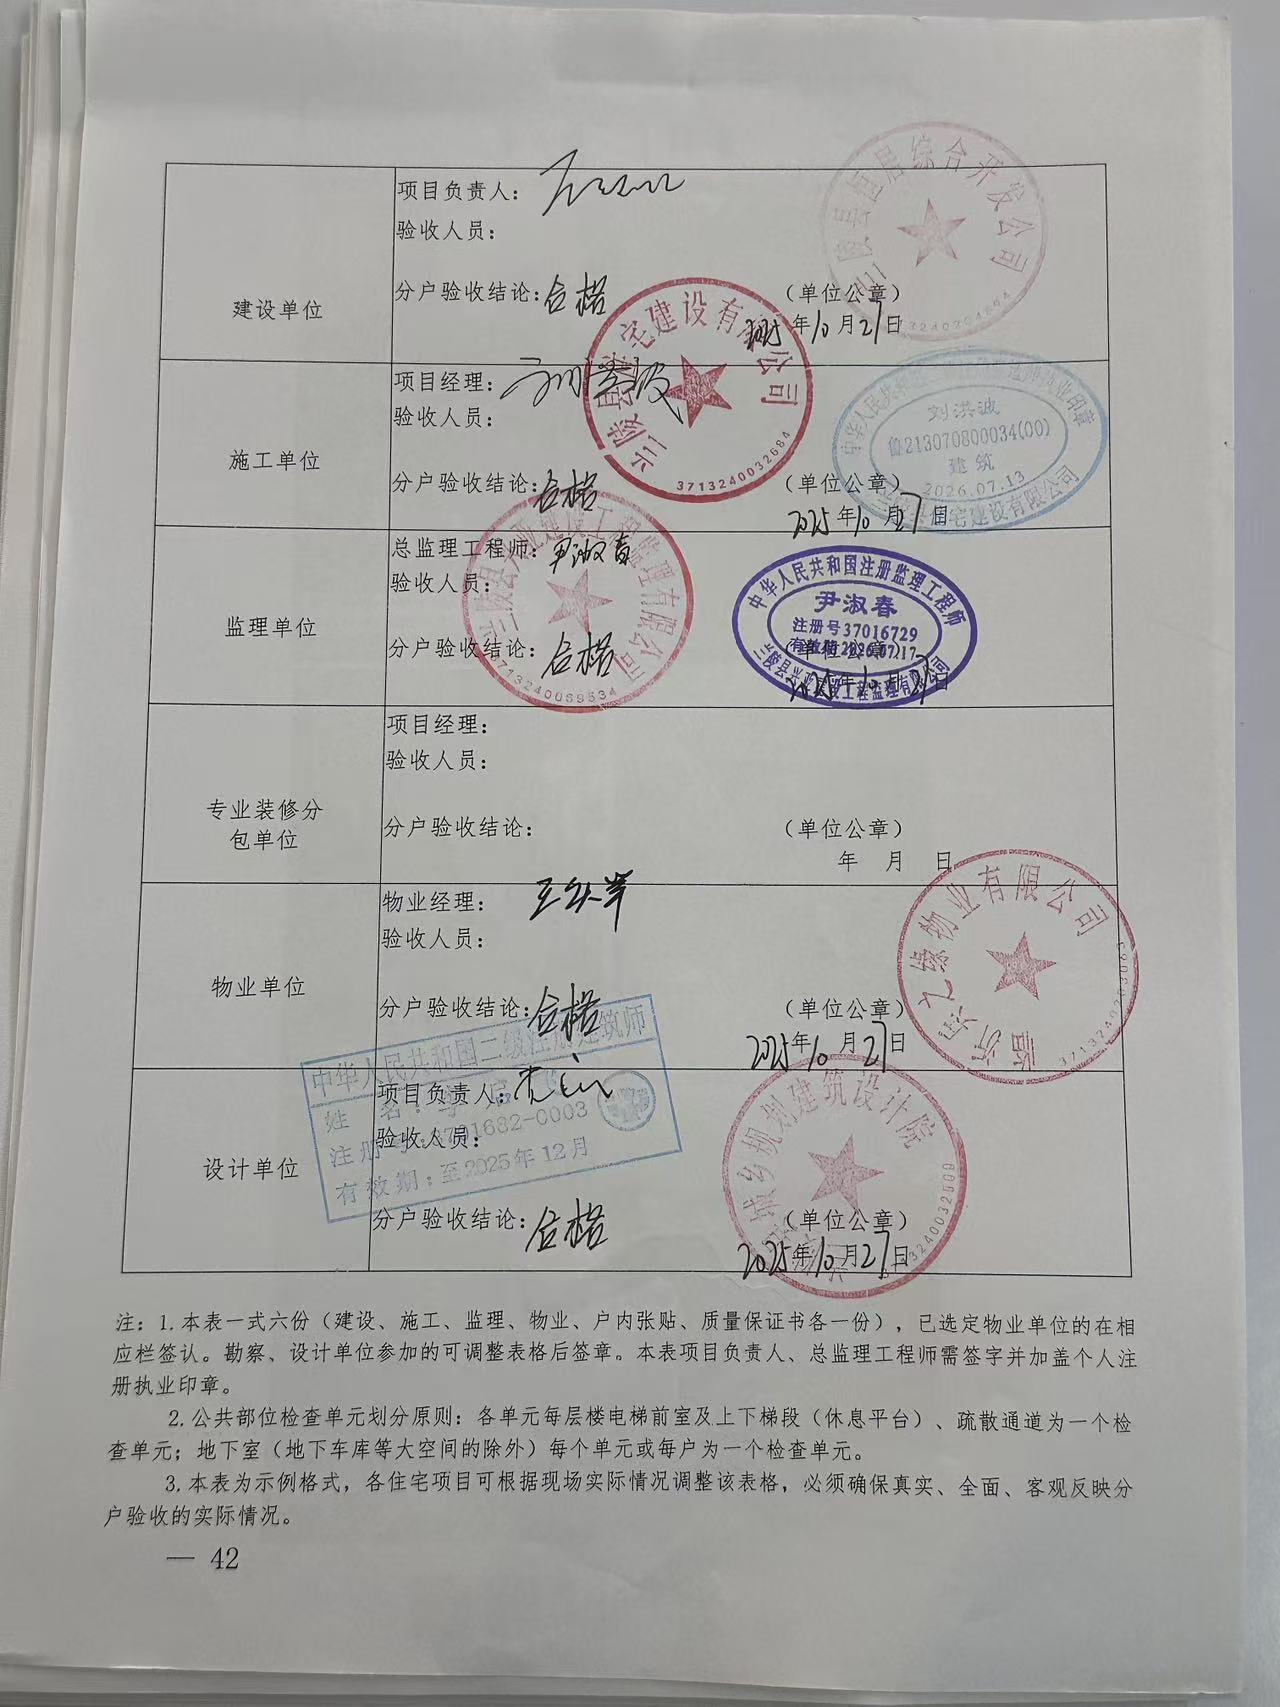 建设单位
项目负责人：
验收人员：
分户验收结论：合格
（单位公章）
2025年10月27日
宜居综合开发公司
施工单位
项目经理：
验收人员：
分户验收结论：合格
（单位公章）
2025年10月27日
兰陵县 宅建设有限公司
3713240032684
刘洪波
鲁213070800034(00)
建筑
2026.07.13
宅建设有限公司
监理单位
总监理工程师：尹淑春
验收人员：
分户验收结论：合格
（单位公章）
3713240069534
中华人民共和国注册监理工程师
尹淑春
注册号37016729
有效期2026.07.17
兰陵县兴亚建设工程监理有限公司
专业装修分
包单位
项目经理：
验收人员：
分户验收结论：
（单位公章）
年 月 日
物业单位
物业经理：
验收人员：
分户验收结论：合格
（单位公章）
2025年10月27日
物业有限公司
设计单位
项目负责人：
验收人员：
分户验收结论：合格
（单位公章）
2025年10月27日
中华人民共和国二级注册建筑师
姓 名：
注册号：3701682-0003
有效期：至2025年12月
城乡规划建筑设计院
3713240032509
注：1.本表一式六份（建设、施工、监理、物业、户内张贴、质量保证书各一份），已选定物业单位的在相
应栏签认。勘察、设计单位参加的可调整表格后签章。本表项目负责人、总监理工程师需签字并加盖个人注
册执业印章。
2.公共部位检查单元划分原则：各单元每层楼电梯前室及上下梯段（休息平台）、疏散通道为一个检
查单元；地下室（地下车库等大空间的除外）每个单元或每户为一个检查单元。
3.本表为示例格式，各住宅项目可根据现场实际情况调整该表格，必须确保真实、全面、客观反映分
户验收的实际情况。
— 42